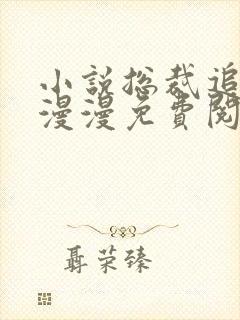 小說总裁追
漫漫免費閱
聶荣臻